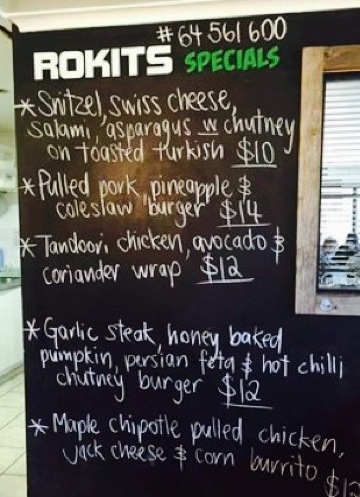 # 64 561 600
ROKITS SPECIALS
* Snitzel, swiss cheese,
salami, asparagus w chutney
on toasted turkish $10
* Pulled pork, pineapple &
coleslaw burger $14
* Tandoori chicken, avocado &
coriander wrap $12
* Garlic steak, honey baked
pumpkin, persian feta & hot chilli
chutney burger $12
* Maple chipotle pulled chicken,
jack cheese & corn burrito